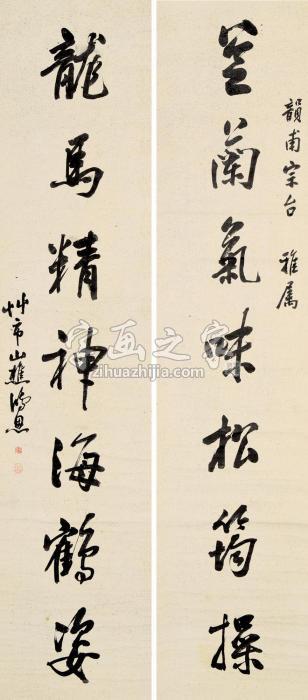 韻甫宗台 雅属
芝蘭氣味松筠操
龍馬精神海鶴姿
艸市山樵鴻恩
字画之家
zihuazhijia.com